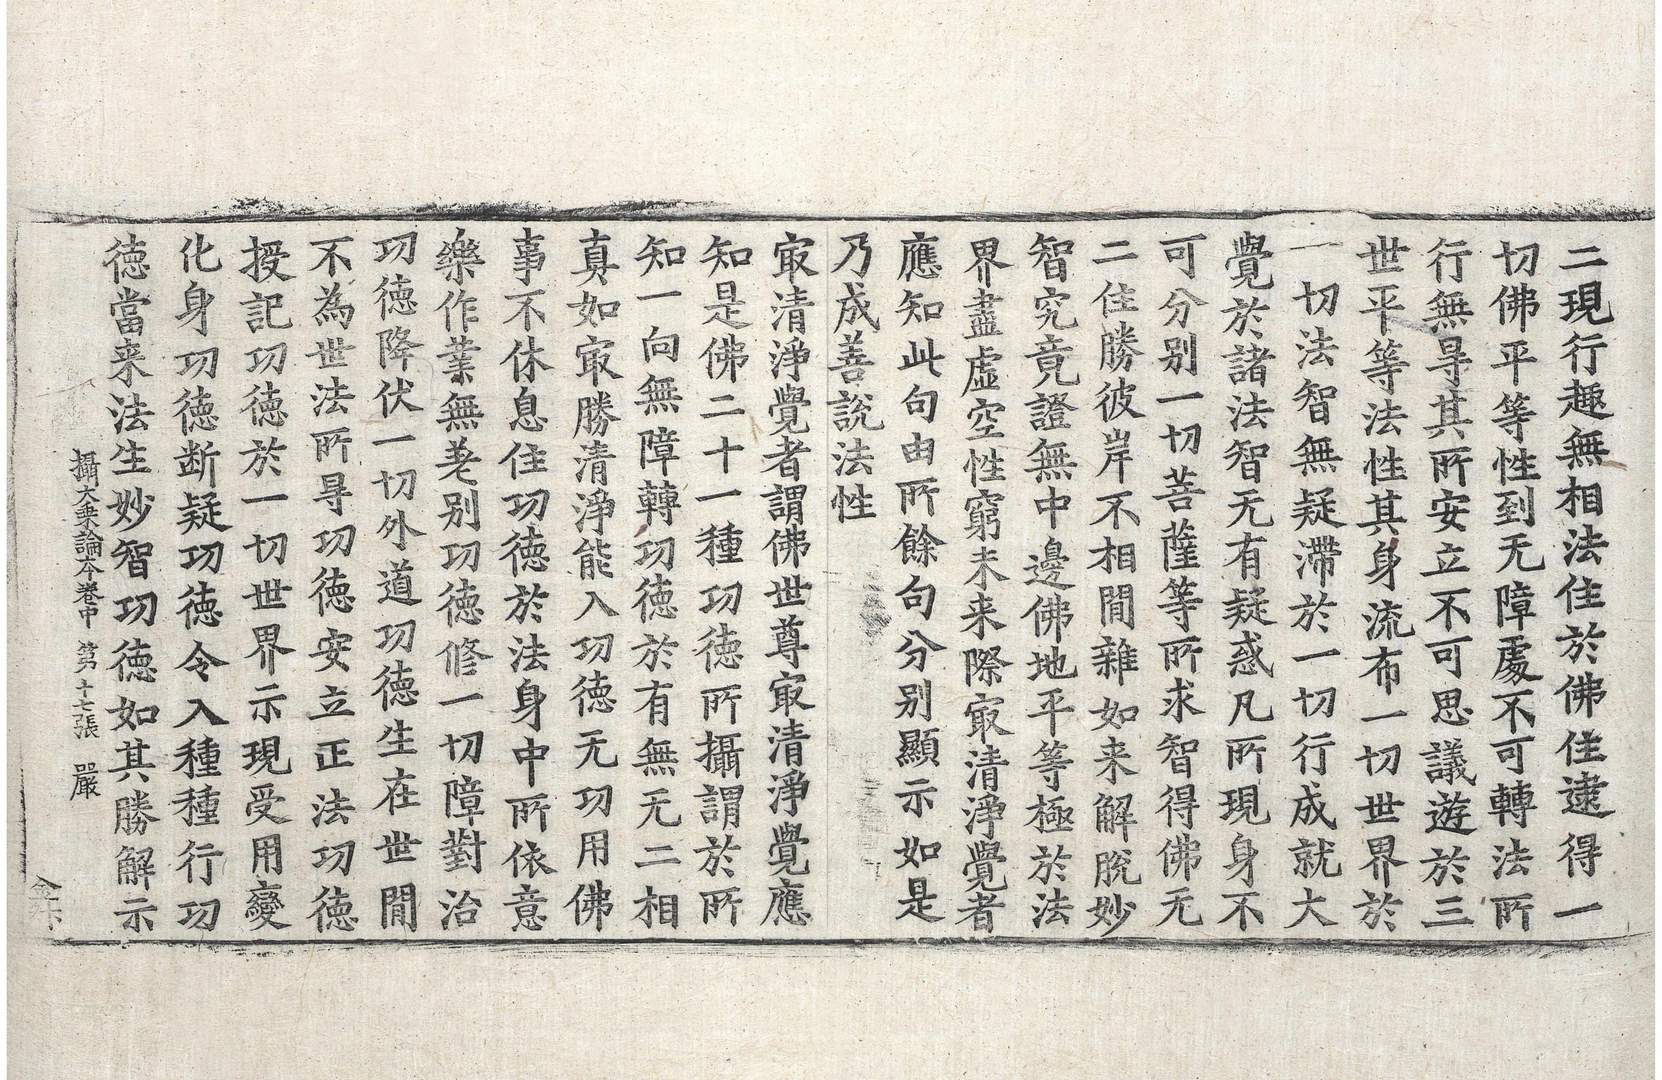 二現行趣無相法住於佛住逮得一
切佛平等性到无障處不可轉法所
行無㝵其所安立不可思議遊於三
世平等法性其身流布一切世界於
一切法智無疑滯於一切行成就大
覺於諸法智无有疑惑凡所現身不
可分别一切菩薩等所求智得佛无
二住勝彼岸不相間雜如来解脫妙
智究竟證無中邊佛地平等極於法
界盡虛空性窮未来際㝡清淨覺者
應知此句由所餘句分别顯示如是
乃成善說法性
㝡清淨覺者謂佛世尊㝡清淨覺應
知是佛二十一種功德所攝謂於所
知一向無障轉功德於有無无二相
真如㝡勝清淨能入功德无功用佛
事不休息住功德於法身中所依意
樂作業無差别功德修一切障對治
功德降伏一切外道功德生在世間
不為世法所㝵功德安立正法功德
授記功德於一切世界示現受用變
化身功德断疑功德令入種種行功
德當来法生妙智功德如其勝解示
攝大乗論本卷中 第十七張 嚴